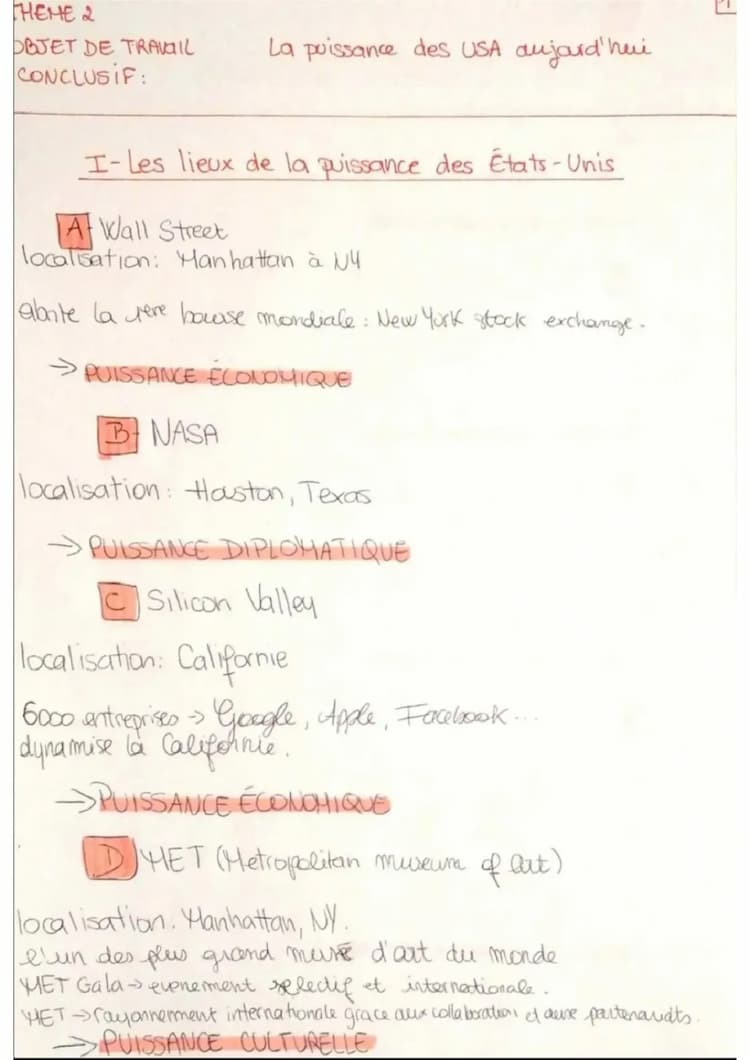 THEME 2
OBJET DE TRAVAIL La puissance des USA aujourd'hui
CONCLUSIF:
I-Les lieux de la puissance des États-Unis
A Wall Street
localisation: Manhattan à NY
abrite la 1ere bourse mondiale: New York stock exchange.
→ PUISSANCE ÉCONOMIQUE
B NASA
localisation: Houston, Texas
→ PUISSANCE DIPLOMATIQUE
C Silicon Valley
localisation: Californie
6000 entreprises → Google, Apple, Facebook...
dynamise la Californie.
→ PUISSANCE ÉCONOMIQUE
D MET (Metropolitan museum of art)
localisation. Manhattan, NY.
l'un des plus grand musé d'art du monde
MET Gala → evenement selectif et internationale.
MET → rayonnement internationale grace aux collaborations et aux partenariats.
→ PUISSANCE CULTURELLE